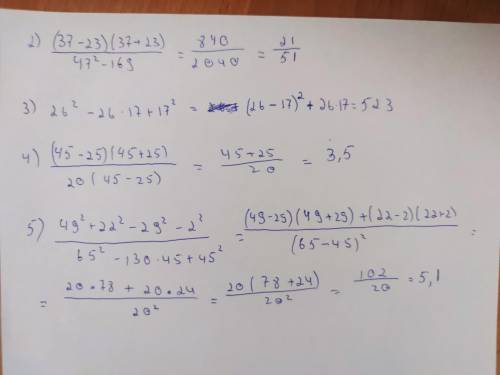 2) (37-23)(37+23) / 47² - 169 = 840 / 2040 = 21 / 51
3) 26² - 26·17 + 17² = (26-17)² + 26·17 = 523
4) (45-25)(45+25) / 20(45-25) = 45+25 / 20 = 3,5
5) 49² + 22² - 29² - 2² / 65² - 130·45 + 45² = (49-25)(49+29) + (22-2)(22+2) / (65-45)² =
= 20·78 + 20·24 / 20² = 20(78+24) / 20² = 102 / 20 = 5,1